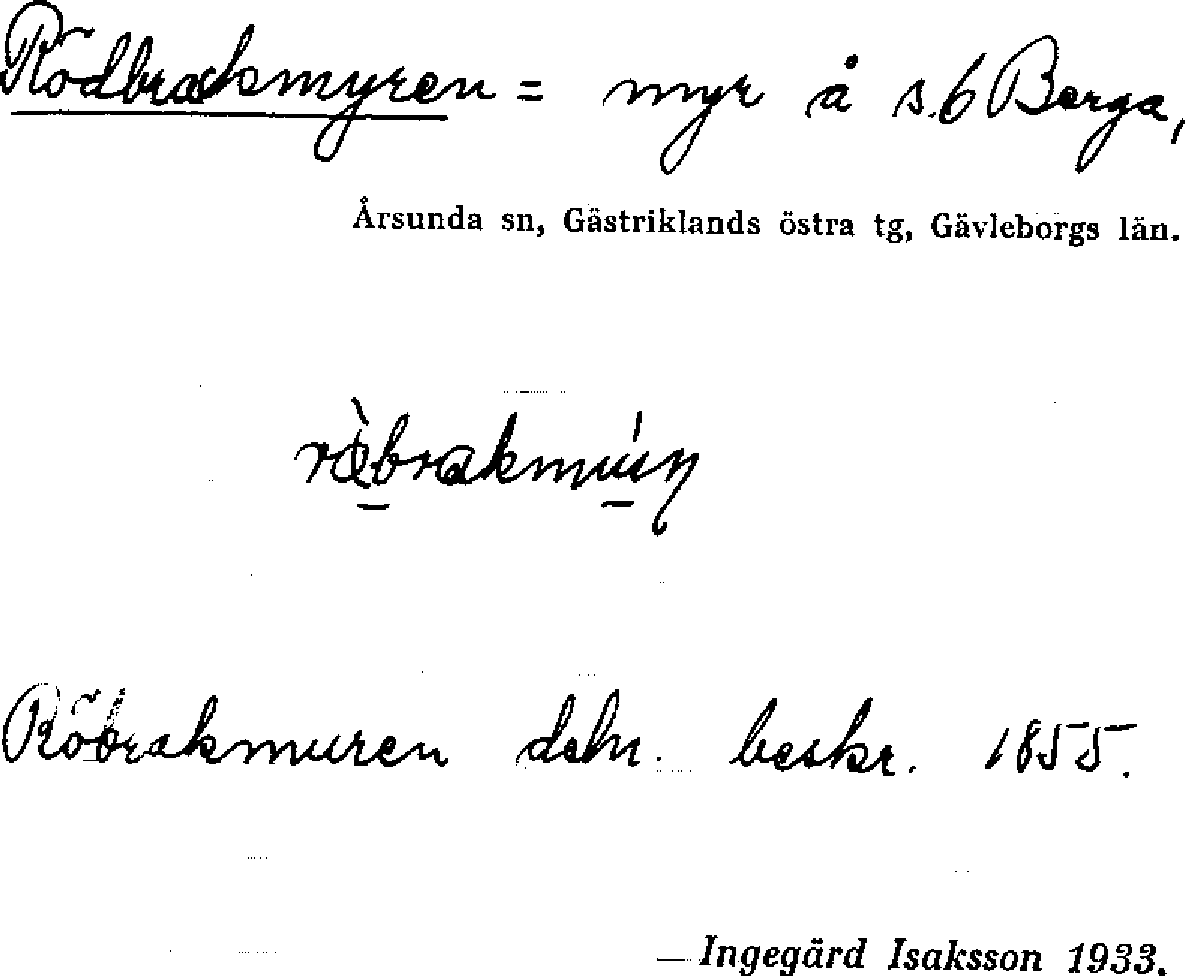 Rödbraksmyren = myr å s. 6 Berga,
Årsunda sn, Gästriklands östra tg, Gävleborgs län.
Röbrakmuren deln. beskr. 1855.
— Ingegärd Isaksson 1933.